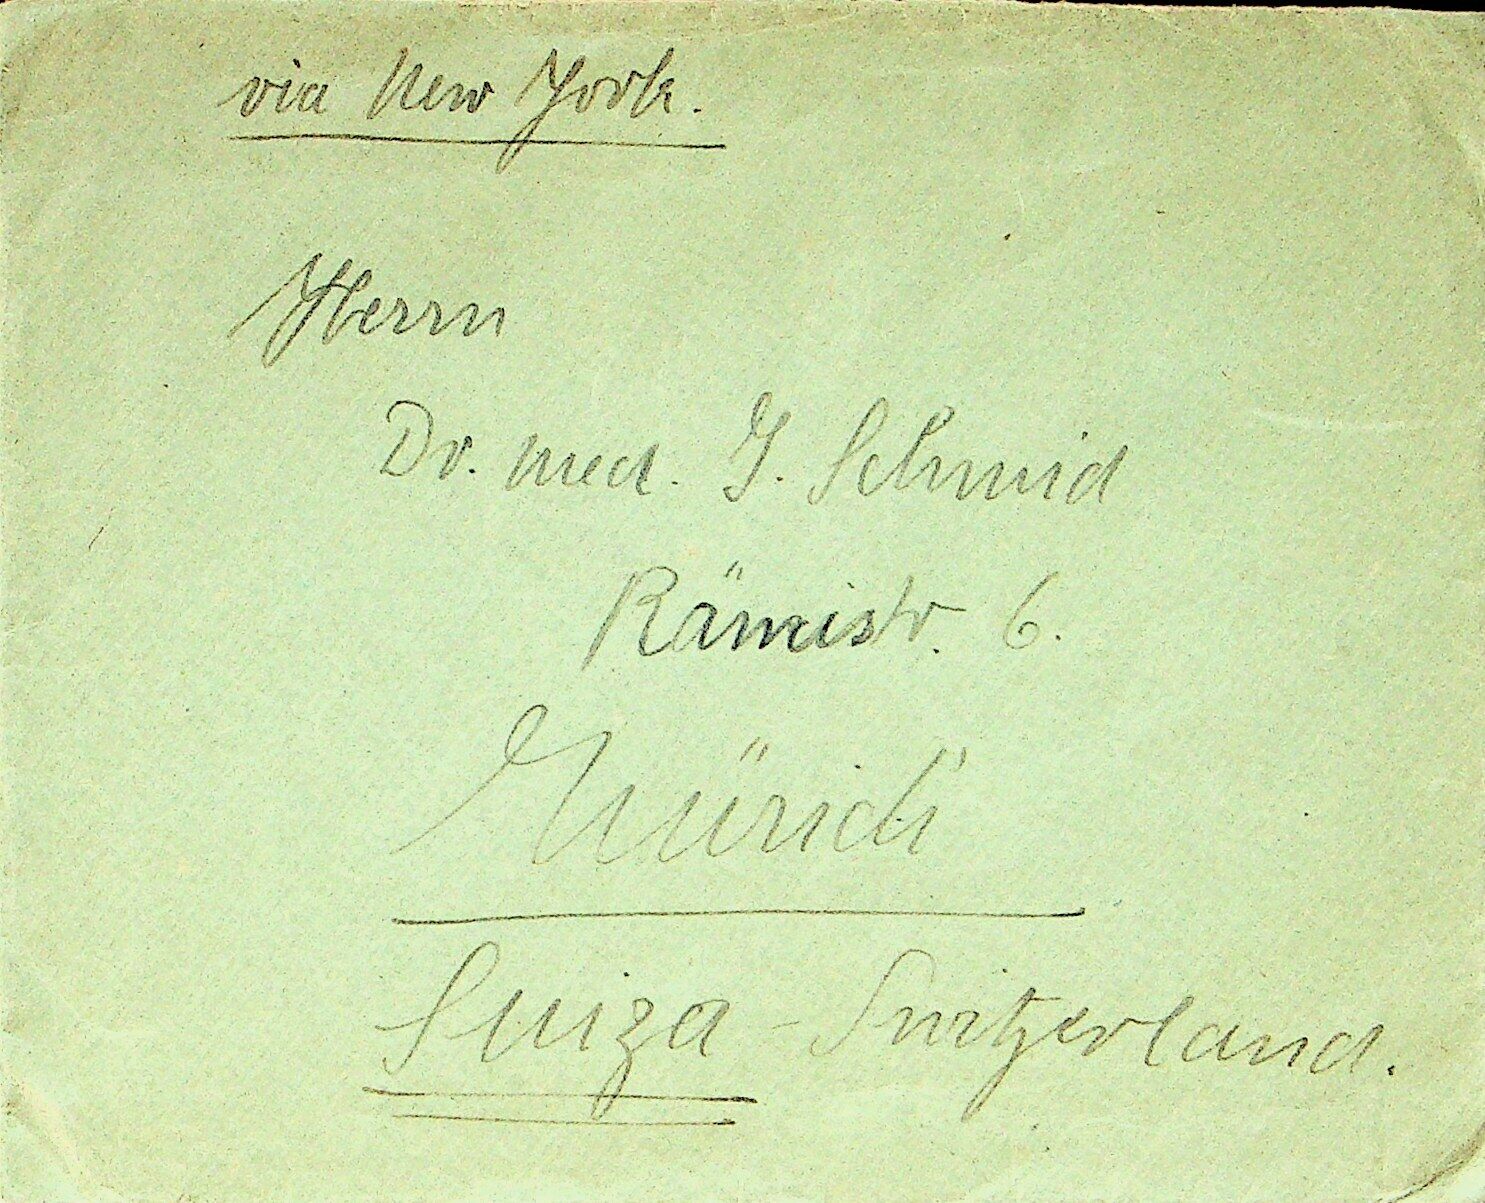 via New York.
Herrn
Dr. med. J. Schmid
Rämistr. 6.
Zürich
Suiza - Switzerland.